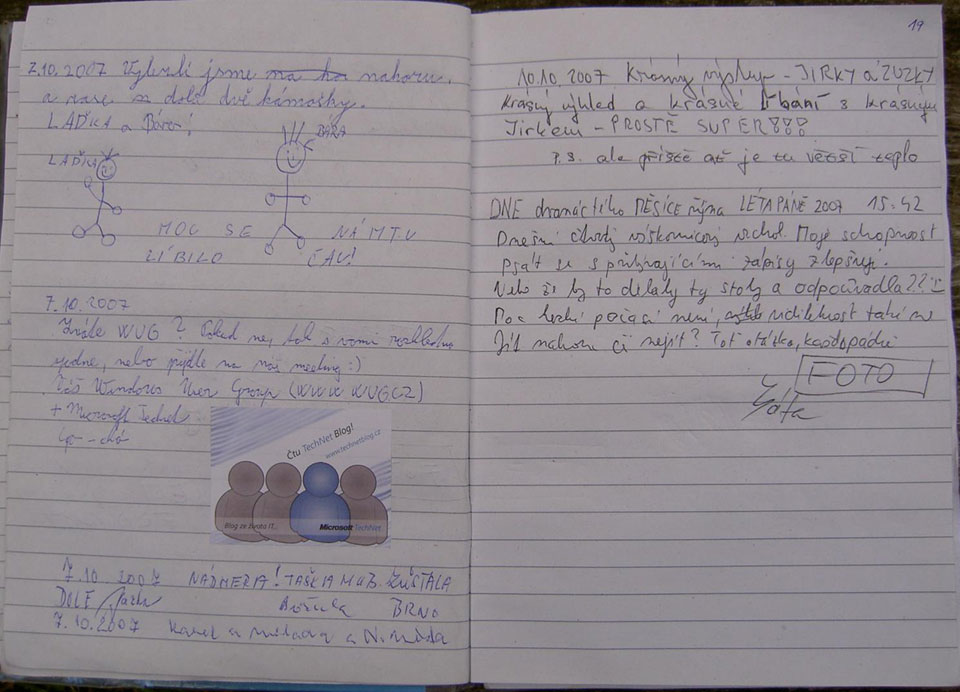 2.10.2007 Vylezli jsme nahoru.
a zase dolů dvě kámošky.
LAĎKA a Bára!
LAĎKA
BÁRA
MOC SE NÁM TU
LÍBILO ČAU!
7.10.2007
Znáte WUG? Pokud ne, tak s námi
nebo přijďte na náš meeting :)
Váš Windows User Group (WWW WUG CZ)
+ Microsoft
Čtu TechNet Blog!
www.technetblog.cz
Blog ze života IT...
Microsoft TechNet
7.10 2007 NÁDHERA! TAŠKA ZŮSTALA
DOLE BRNO
7.10.2007 Karel a a
19
10.10.2007 Krásný výstup - JIRKY A ZUZKY
Krásný výhled a krásné líbání s krásným
Jirkem - PROSTĚ SUPER!!!
P.S. ale příště ať je tu větší teplo
DNE dvanáctého MĚSÍCE října LÉTA PÁNĚ 2007 15:42
Dnešní čtvrtý vrchol. Moje schopnost
psát se s přibývajícími zápisy zlepšuje.
Nebo že by to dělaly ty stoly a odpočívadla??
Moc hezké počasí není, viditelnost také ne
Jít nahoru či nejít? Toť otázka, každopádně
FOTO